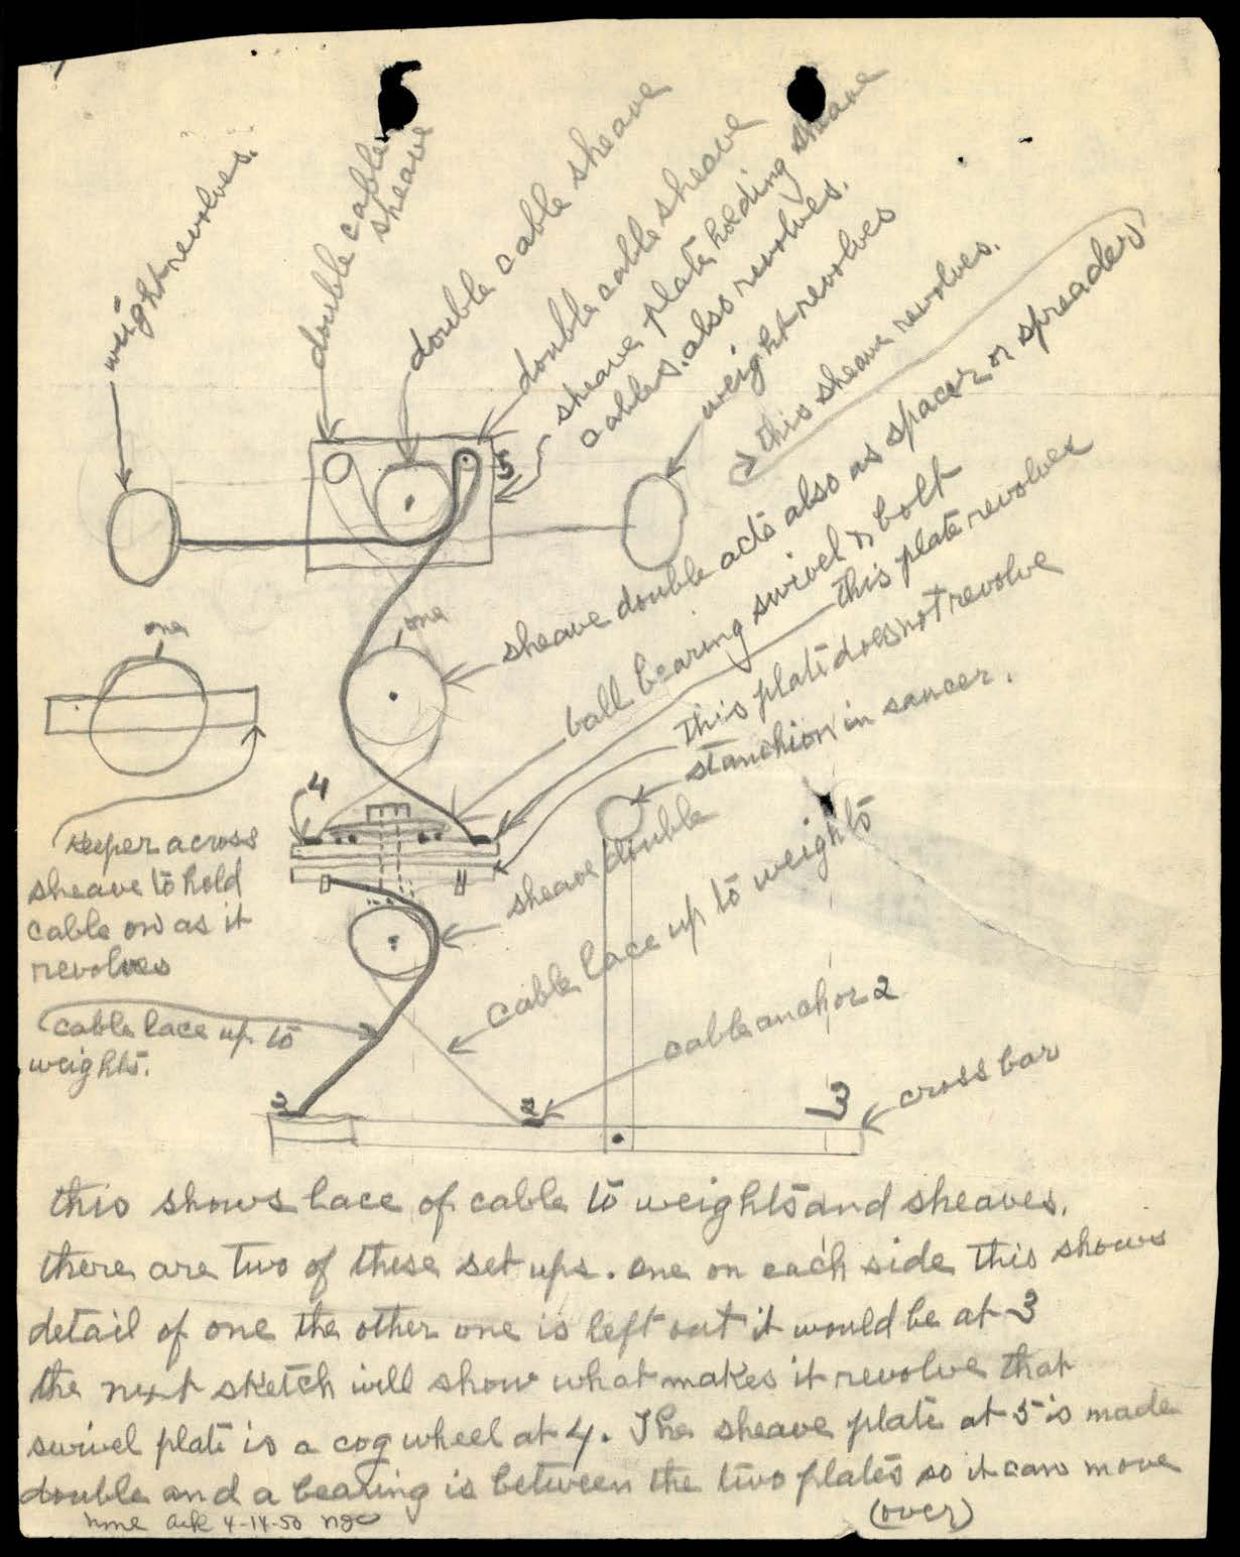 weight revolves.
double cable
sheave
double cable sheave
double cable sheave
sheave plate holding sheave
cables. also revolves.
weight revolves
this sheave revolves.
sheave double acts also as spacer or spreader
ball bearing swivel n bolt
this plate revolves
this plate does not revolve
stanchion in saucer.
5
one
one
4
keeper across
sheave to hold
cable on as it
revolves
sheave double
cable lace up to weights
cable lace up to
weights.
cable anchor 2
cross bar
2
2
3
this shows lace of cable to weights and sheaves.
there are two of these set ups. one on each side this shows
detail of one the other one is left out it would be at 3
the next sketch will show what makes it revolve that
swivel plate is a cog wheel at 4. The sheave plate at 5 is made
double and a bearing is between the two plates so it can move
(over)
ack 4-14-50